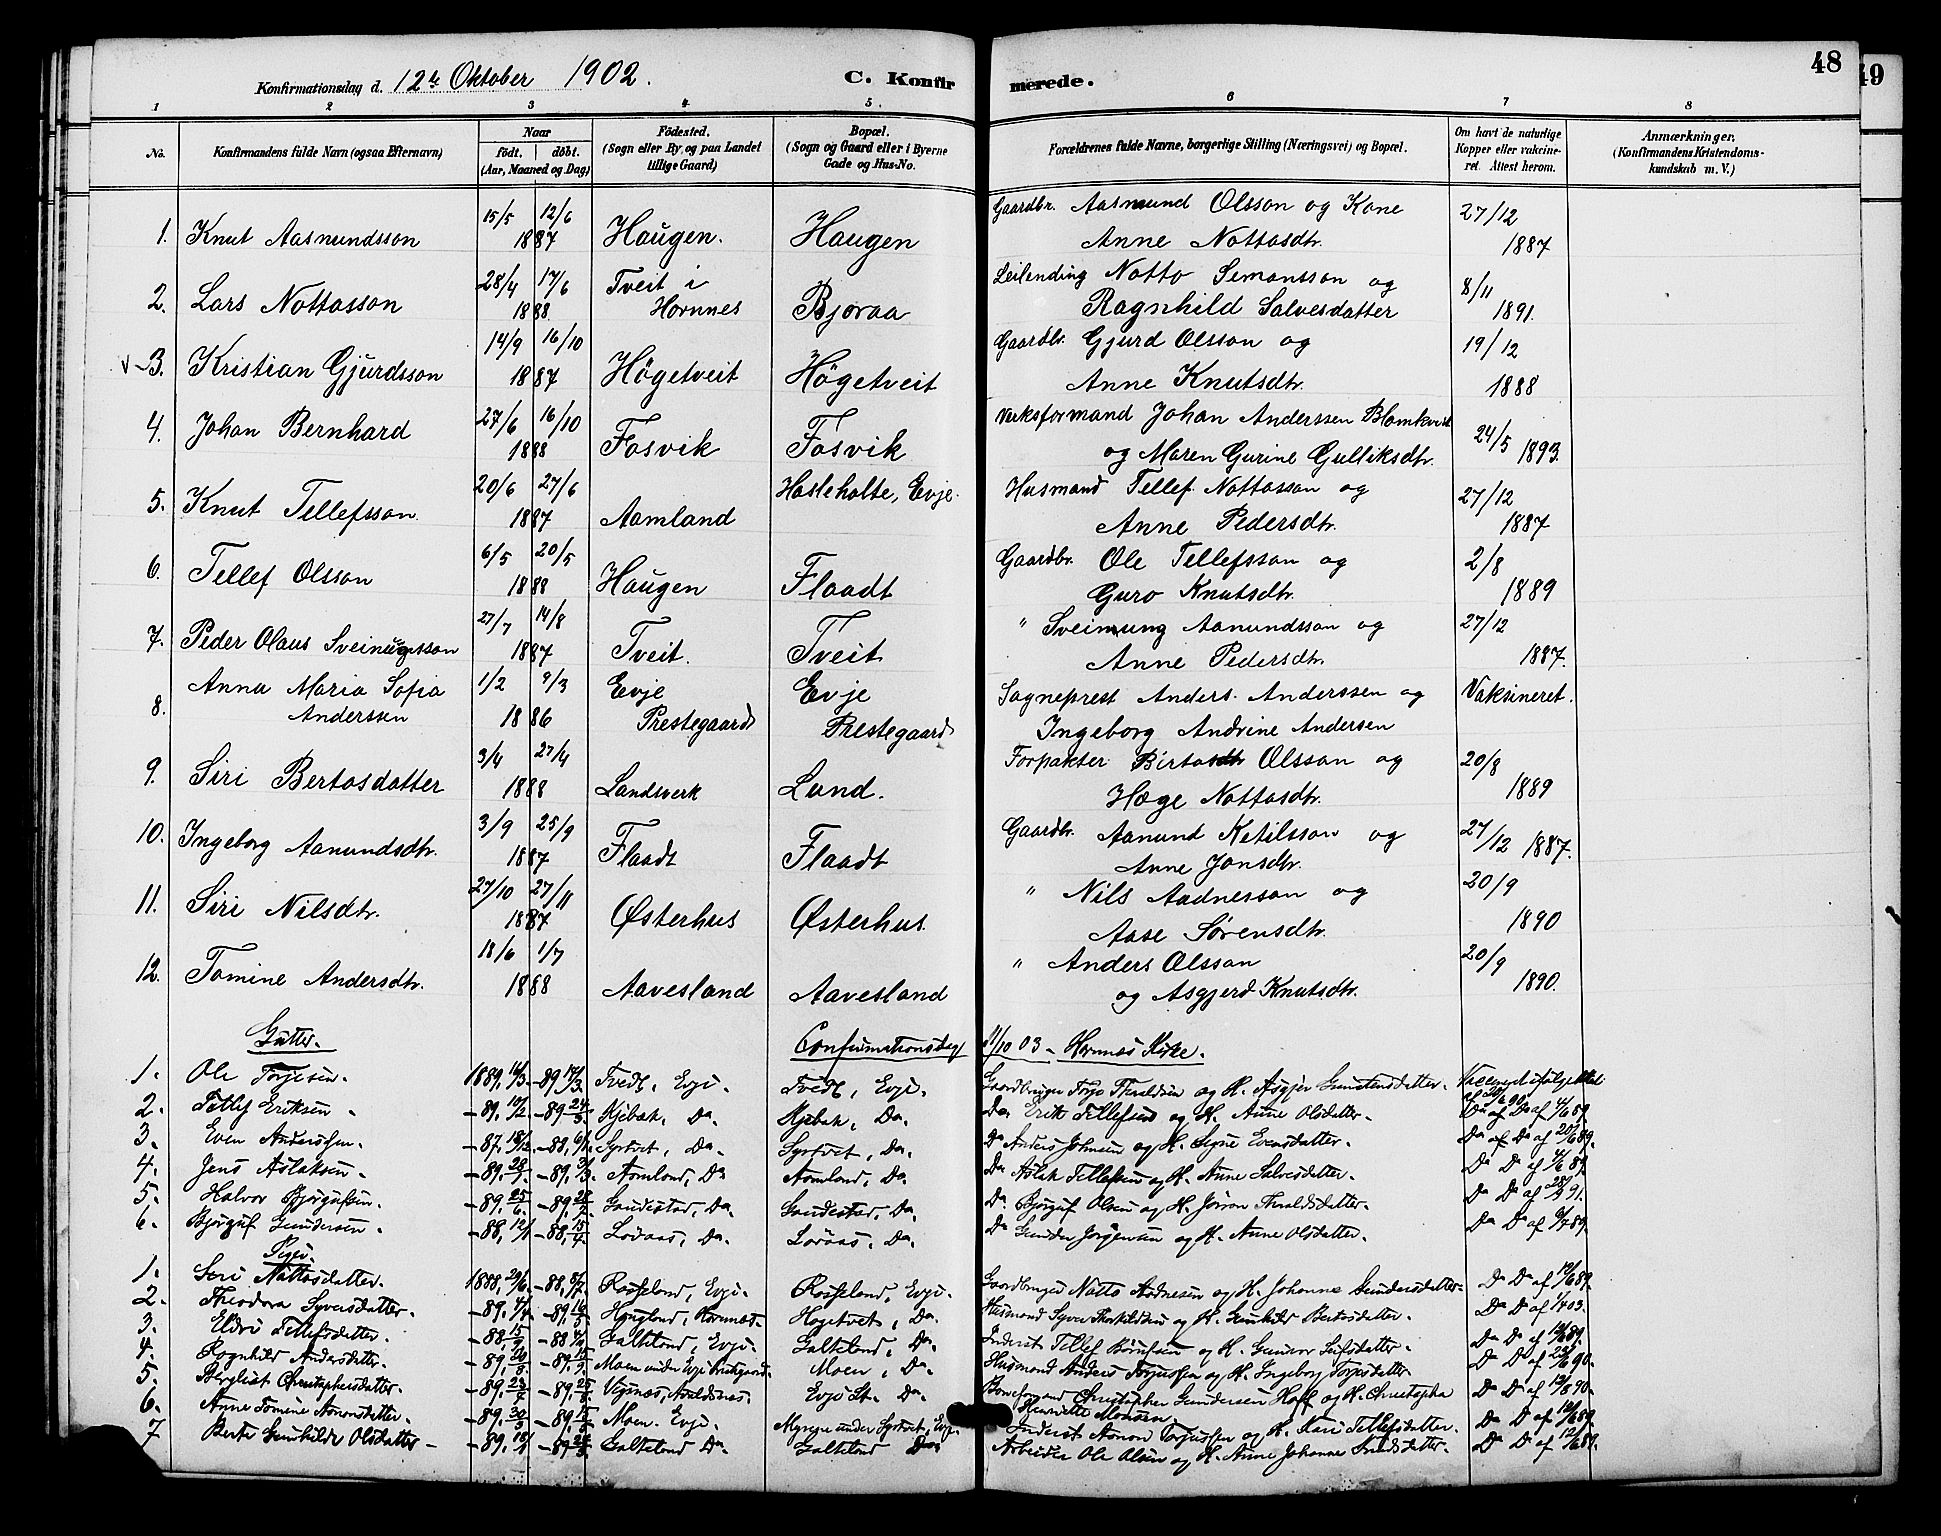 48
49
Konfirmationsdag d. 12te Oktober 1902. C. Konfirmerede.
1 2 3 4 5. 6 7 8
No. Konfirmandens fulde Navn (ogsaa Efternavn) Naar født, døbt. (Aar, Maaned og Dag) Fødested. (Sogn eller By, og paa Landet tillige Gaard) Bopæl. (Sogn og Gaard eller i Byerne Gade og Hus-No. Forældrenes fulde Navne, borgerlige Stilling (Næringsvei) og Bopæl. Om havt de naturlige Kopper eller vakcineret. Attest herom. Anmærkninger, (Konfirmandens Kristendomskundskab m. V.)
1. Knut Aasmundsson 15/5 12/6 1887 Haugen. Haugen Gaardbr. Aasmund Olsson og Kone Anne Nottosdtr. 27/12 1887
2. Lars Nottosson 28/4 17/6 1888 Tveit i Hornnes Bjoraa Leilending Notto Simonsson og Ragnhild Salvesdatter 8/11 1891.
3. Kristian Gjurdsson 14/9 16/10 1887 Högetveit Högetveit Gaardbr. Gjurd Olsson og Anne Knutsdtr. 19/12 1888
4. Johan Bernhard 27/6 16/10 1888 Fosvik Fosvik Verksformand Johan Anderssen Blomkvist og Maren Gurine Gulliksdtr. 24/5 1893.
5. Knut Tellefsson. 20/6 27/6 1887 Aamland Hasleholte, Evje. Husmand Tellef Nottosson og Anne Pedersdtr. 27/12 1887
6. Tellef Olsson 6/5 20/5 1888 Haugen Flaadt Gaardbr. Ole Tellefsson og Guro Knutsdtr. 2/8 1889
7. Peder Olaus Sveinugsson 27/7 14/8 1887 Tveit. Tveit " Sveinung Aanundsson og Anne Pedersdtr. 27/12 1887.
8. Anna Maria Sofia Anderssen 1/2 9/3 1886 Evje Prestegaard Evje Prestegaard Sogneprest Anders. Anderssen og Ingeborg Andrine Andersen Vaksineret.
9. Siri Bertosdatter 3/4 27/4 1888 Landsverk Lund. Forpakter Birto Olsson og Hæge Nottosdtr. 20/8 1889
10. Ingeborg Aanundsdtr. 3/9 25/9 1887 Flaadt Flaadt Gaardbr. Aanund Ketilsson og Anne Jonsdtr. 27/12 1887.
11. Siri Nilsdtr. 27/10 27/11 1887 Østerhus Østerhus. " Nils Aadnesson og Aase Sørensdtr. 20/9 1890
12. Tomine Andersdtr. 18/6 1/7 1888 Aavesland Aavesland " Anders Olsson og Asgjerd Knutsdtr. 20/9 1890.
Gutter. Confirmationsdag 11/10 03 - Hornnes Kirke.
1. Ole Torjesen. 1889, -89, Tvedt, Evje. Tvedt, Evje. Gaardbruger Torjo og H. Asgjer Gunstensdatter.
2. Tellef Eriksen -89, -89 Kjebak, Do. Kjebak, Do. Do. Erik Tellefsen og H. Anne Olsdatter. Do af Do af 4/6 89.
3. Even Anderssen. -87, -88, Syrtvet, Do. Syrtvet, Do. Do Anders Johnsen og H. Signe Evensdatter. Do af Do af 20/6 89.
4. Jens Aslaksen. -89, -89, Aamland, Do Aamland, Do. Do. Aslak Tellefsen og H. Anne Salvesdatter. Do Do af 4/6 89.
5. Halvor Bjørgufsen. -89, 25/6. -89, Gaudestad, Do. Gaudestad, Do. Do. Bjørguf Olsen og H. Jøron Thraldsdatter. Do Do af 91.
6. Bjørguf Gundersen. -88, 12/1 -88, 15/4 Lövaas, Do. Lövaas, Do. Do Gunder Jørgensen og H. Anne Olsdatter. Do Do af 89.
Piger.
1. Siri Nottosdatter. 1888, 29/6. -88, 8/7. Rosseland, Evje. Rosseland, Evje. Gaardbruger Notto Aadnesen og H. Johanne Gundersdatter. Do Do af 12/6 89.
2. Theodora Syversdatter. -89, 4/4 -89, Haugland, Hornnes. Høgetvet, Do. Husmand Syver og H. Gunhild Bertosdatter. Do Do af 03.
3. Eldri Tellefsdatter. -88 15/9 -88 Galteland, Evje. Galteland, Do. Inderst Tellef og H. Gunvor Leifsdatter. Do Do af 12/6 89.
4. Ragnhild Andersdatter. -89, -89, Moen under Evje Prestegaard Moen, Do. Husmand Anders Torjussen og H. Ingeborg Torjusdatter Do Do af 90.
5. Bergliot Christophersdatter. -89, -89, Evje St. Do. Christopher Gundersen Hoff og H. Christopha Henriette Monsen. Do Do af 90.
6. Anne Tomine Aanonsdatter. -89, -89, Moen. Evje. under Syrtvet, Evje. Inderst Aanon Torjussen og H. Kari Tellefsdatter. Do Do af 12/6 89.
7 Berte Gunhilde Olsdatter -89, -89 Galteland Do. Galteland Do. Arbeider Ole Olsen og H. Anne Johanne Do Do af 12/6 89.